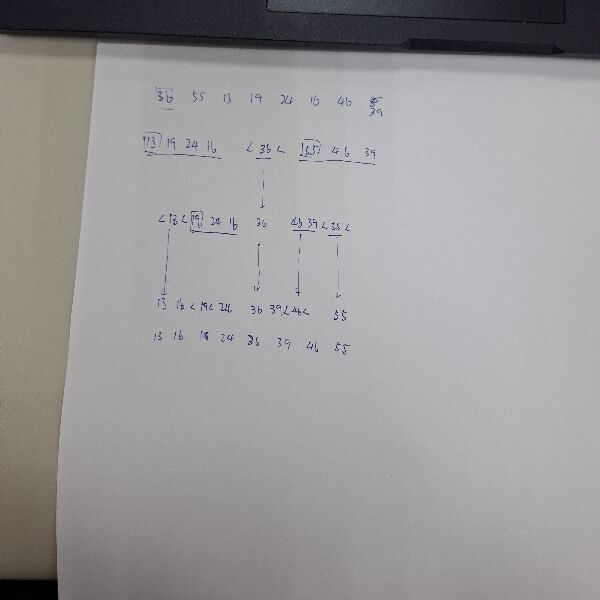 36 55 13 19 24 16 46
39
13 19 24 16 < 36 < 55 46 39
< 13 < 19 24 16 36 46 39 < 55 <
13 16 < 19 < 24 36 39 < 46 < 55
13 16 19 24 36 39 46 55